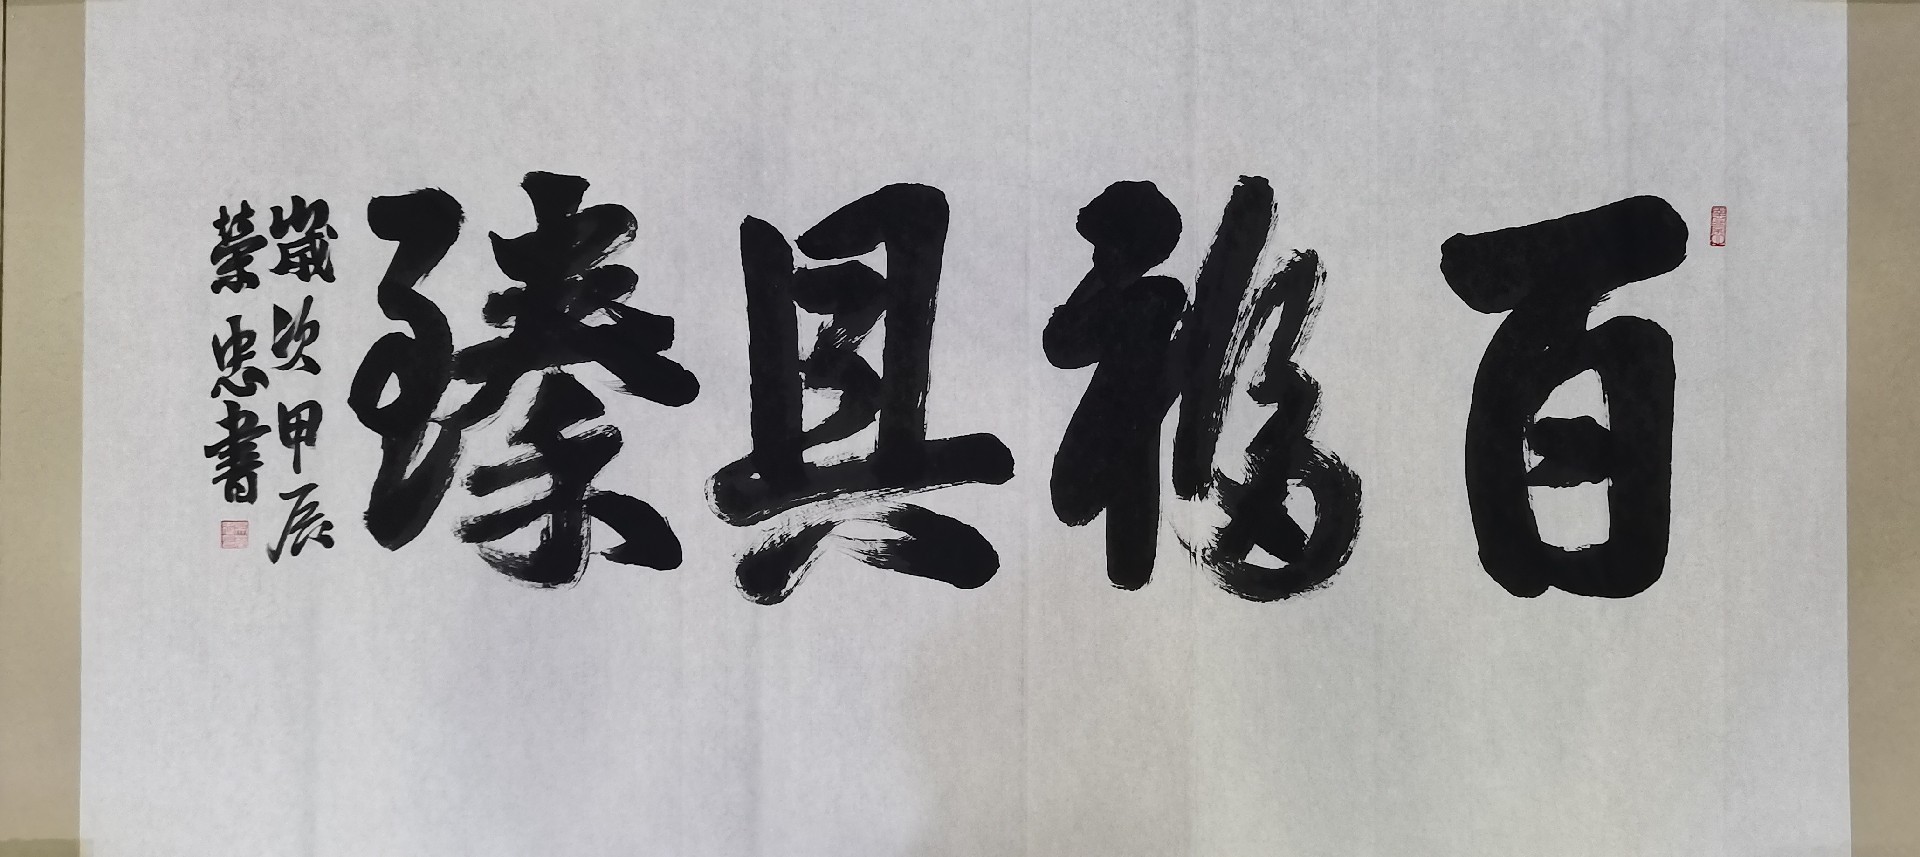 百福具臻
歲次甲辰
榮忠書